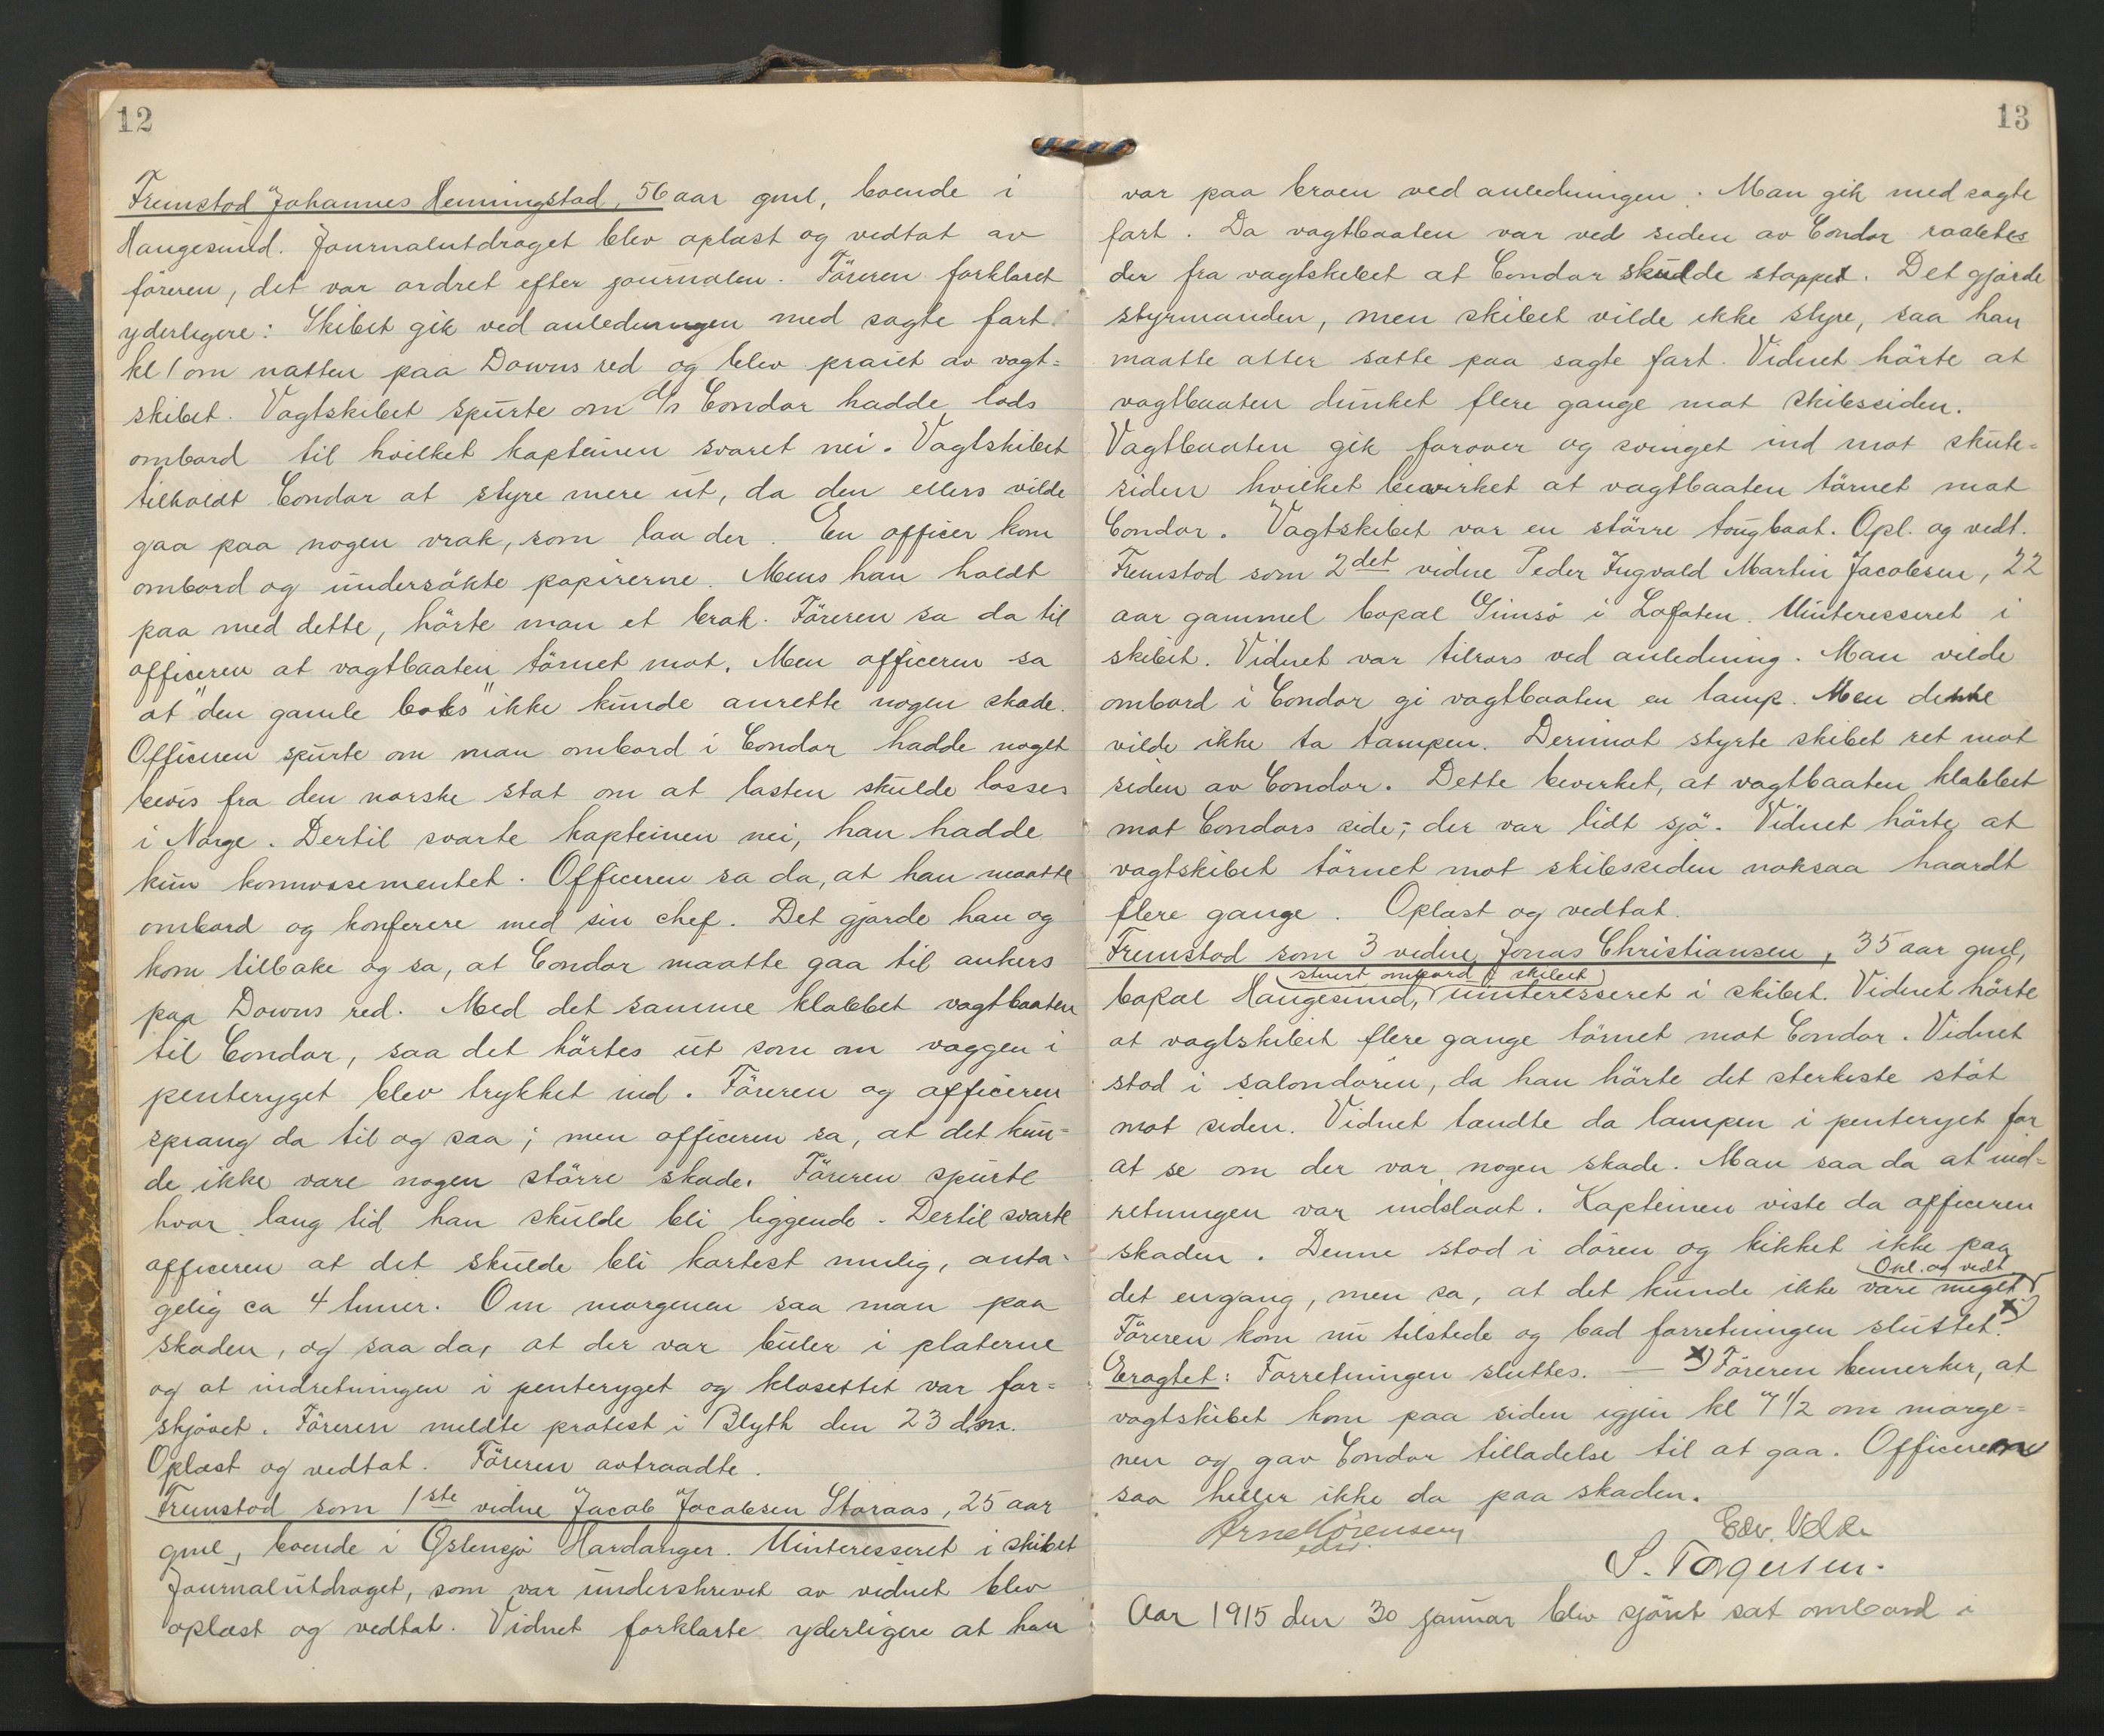 12
Fremstod Johannes Henningstad, 56 aar gml, boende i
Haugesund. Journalutdraget blev oplæst og vedtat av
föreren, det var ordret efter journalen. Föreren forklaret
yderligere: Skibet gik ved anledningen med sagte fart
kl 1 om natten paa Downs red og blev praiet av vagt=
skibet. Vagtskibet spurte om d/s Condor hadde lods
ombord til hvilket kapteinen svaret nei. Vagtskibet
tilholdt Condor at styre mere ut, da den ellers vilde
gaa paa nogen vrak, som laa der. En officer kom
ombord og undersökte papirerne. Mens han holdt
paa med dette, hörte man et brak. Föreren sa da til
officeren at vagtbaaten törnet mot. Men officeren sa
at "den gamle boks" ikke kunde anrette nogen skade.
Officeren spurte om man ombord i Condor hadde noget
bevis fra den norske stat om at lasten skulde losses
i Norge. Dertil svarte kapteinen nei, han hadde
kun konnossementet. Officeren sa da, at han maatte
ombord og konferere med sin chef. Det gjorde han og
kom tilbake og sa, at Condor maatte gaa til ankers
paa Downs red. Med det samme klabbet vagtbaaten
til Condor, saa det hörtes ut som om væggen i
penteryget blev trykket ind. Föreren og officeren
sprang da til og saa; men officeren sa, at det kun=
de ikke være nogen större skade. Föreren spurte
hvor lang tid han skulde bli liggende. Dertil svarte
officeren at det skulde bli kortest mulig, anta-
gelig ca 4 timer. Om morgenen saa man paa
skaden, og saa da, at der var buler i platerne
og at indretningen i penteryget og klosettet var for=
skjövet. Föreren meldte protest i Blyth den 23 dsm.
Oplæst og vedtat. Föreren avtraadte.
Fremstod som 1ste vidne Jacob Jacobsen Storaas, 25 aar
gml, boende i Östensjö Hardanger. Uinteresseret i skibet
Journalutdraget, som var underskrevet av vidnet blev
oplæst og vedtat. Vidnet forklarte yderligere at han
13
var paa broen ved anledningen. Man gik med sagte
fart. Da vagtbaaten var ved siden av Condor raabtes
der fra vagtskibet at Condor skulde stoppet. Det gjorde
styrmanden, men skibet vilde ikke styre, saa han
maatte atter sætte paa sagte fart. Vidnet hörte at
vagtbaaten dunket flere gange mot skibssiden.
Vagtbaaten gik forover og svinget ind mot skute=
siden hvilket bevirket at vagtbaaten törnet mot
Condor. Vagtskibet var en större tougbaat. Opl. og vedt.
Fremstod som 2det vidne Peder Ingvald Martin Jacobsen, 22
aar gammel bopæl Gimsö i Lofoten. Uinteresseret i
skibet. Vidnet var tilrors ved anledning. Man vilde
ombord i Condor gi vagtbaaten en tamp. Men denne
vilde ikke ta tampen. Derimot styrte skibet ret mot
siden av Condor. Dette bevirket, at vagtbaaten klabbet
mot Condors side; der var lidt sjö. Vidnet hörte at
vagtskibet törnet mot skibssiden noksaa haardt
flere gange. Oplæst og vedtat.
Fremstod som 3 vidne Jonas Christiansen, 35 aar gml,
stuert ombord i skibet
bopæl Haugesund, uinteresseret i skibet. Vidnet hörte
at vagtskibet flere gange törnet mot Condor. Vidnet
stod i salondören, da han hörte det sterkeste stöt
mot siden. Vidnet tændte da lampen i penteryet for
at se om der var nogen skade. Man saa da at ind=
retningen var indslaat. Kapteinen viste da officeren
skaden. Denne stod i dören og kikket ikke paa
Opl. og vedt
det engang, men sa, at det kunde ikke være meget
Föreren kom nu tilstede og bad forretningen sluttet. x)
Eragtet: Forretningen sluttes. — x) Föreren bemerker, at
vagtskibet kom paa siden igjen kl 7 1/2 om morge=
nen og gav Condor tilladelse til at gaa. Officererne
saa heller ikke da paa skaden.
Arne Sörensen
edsv.
Edv.
S. Torgersen.
Aar 1915 den 30 januar blev sjöret sat ombord i